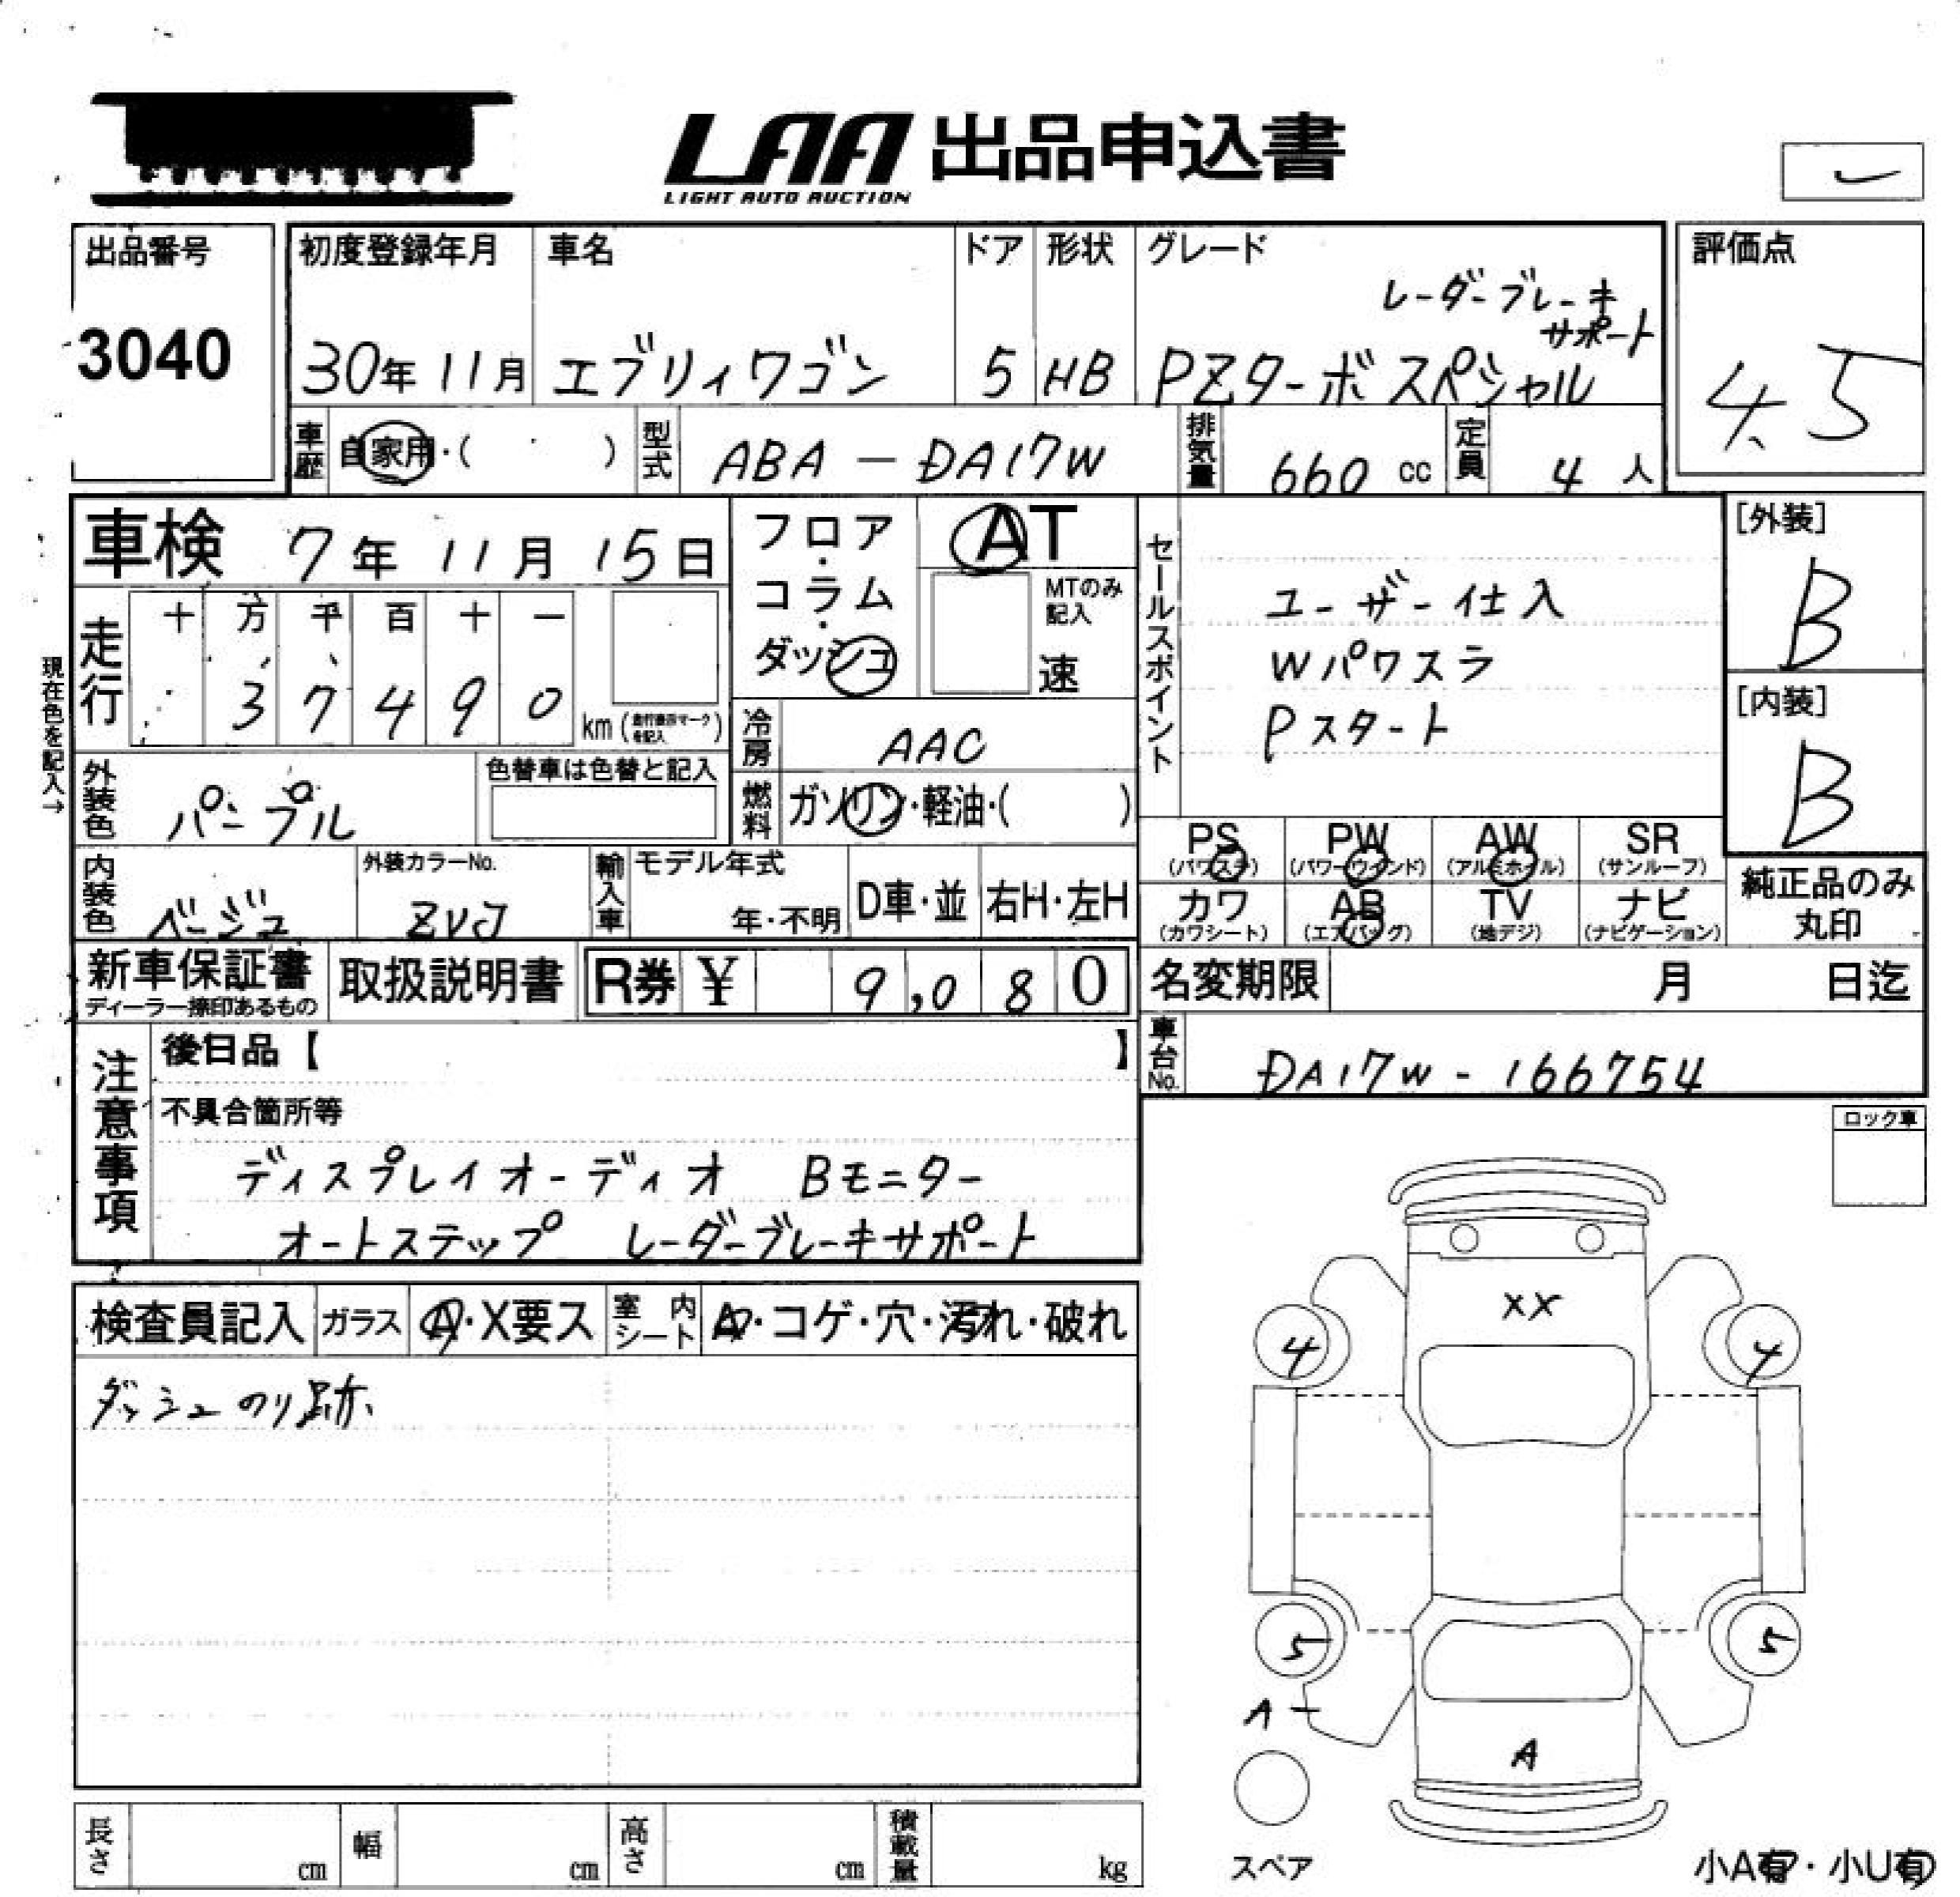 LAA 出品申込書
LIGHT AUTO AUCTION
出品番号
3040
初度登録年月
30年 11月
車名
エブリィワゴン
ドア
5
形状
HB
グレード
レーダーブレーキ
サポート
PZターボスペシャル
評価点
4.5
車歴
自家用・( ・ )
型式
ABA-DA17W
排気量
660 cc
定員
4 人
車検 7年 11月 15日
走行
十 万 千 百 十 一
3 7 4 9 0
km (走行表示マークを記入)
現在色を記入→
フロア・コラム・ダッシュ
AT
MTのみ記入
速
冷房
AAC
燃料
ガソリン・軽油・( )
セールスポイント
ユーザー仕入
Wパワスラ
Pスタート
[外装]
B
[内装]
B
外装色
パープル
色替車は色替と記入
内装色
ベージュ
外装カラーNo.
ZVJ
輸入車
モデル年式
年・不明
D車・並
右H・左H
PS (パワステ)
PW (パワーウインド)
AW (アルミホイル)
SR (サンルーフ)
カワ (カワシート)
AB (エアバック)
TV (地デジ)
ナビ (ナビゲーション)
純正品のみ
丸印
新車保証書
ディーラー捺印あるもの
取扱説明書
R券 ¥ 9,080
名変期限 月 日迄
車台No.
DA17W-166754
注意事項
後日品【 】
不具合箇所等
ディスプレイオーディオ Bモニター
オートステップ レーダーブレーキサポート
ロック車
検査員記入
ガラス
A・X要ス
室内シート
A・コゲ・穴・汚れ・破れ
ダッシュのり跡
XX
4
4
5
5
A
A
スペア
長さ cm
幅 cm
高さ cm
積載量 kg
小A有・小U有